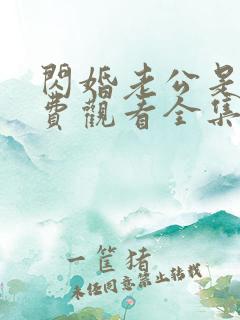 閃婚老公是
費觀看全集
一筐猪
未经同意禁止转载